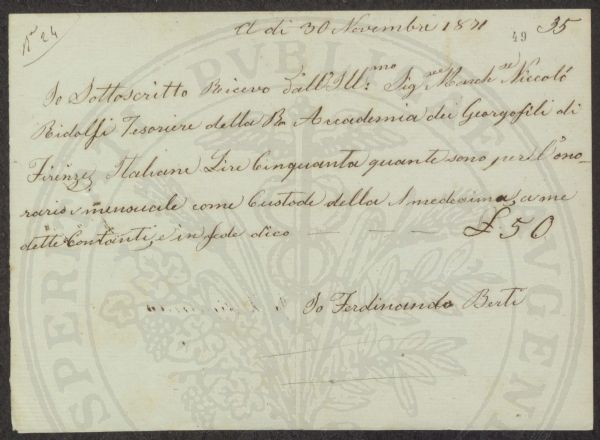 N° 24
A di 30 Novembre 1871
49 35
Io Sottoscritto Ricevo dall'Ill:mo Sigre Marchse Niccolò
Ridolfi Tesoriere della Re Accademia dei Georgofili di
Firenze Italiane Lire Cinquanta quante sono per l'ono-
rario mensuale come Custode della Medesima, a me
detti Contanti, e in fede dico — — — £ 50
Io Ferdinando Berti